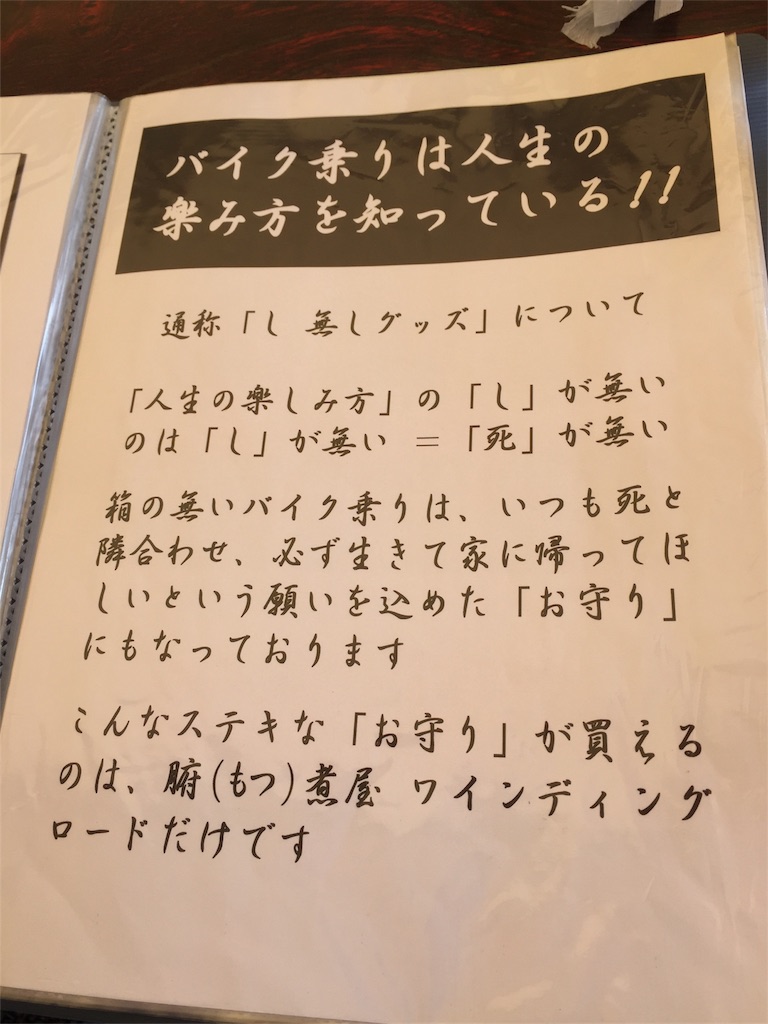 バイク乗りは人生の
楽み方を知っている!!
通称「し 無しグッズ」について
「人生の楽しみ方」の「し」が無い
のは「し」が無い =「死」が無い
箱の無いバイク乗りは、いつも死と
隣合わせ、必ず生きて家に帰ってほ
しいという願いを込めた「お守り」
にもなっております
こんなステキな「お守り」が買える
のは、腑(もつ)煮屋 ワインディング
ロードだけです